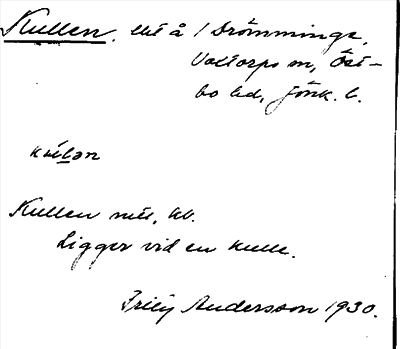 Kullen. utt å 1 Drömminge,
Voxtorps sn, Öst-
bo hd, Jönk. l.
kúlən
Kullen
Ligger vid en kulle.
Andersson 1930.